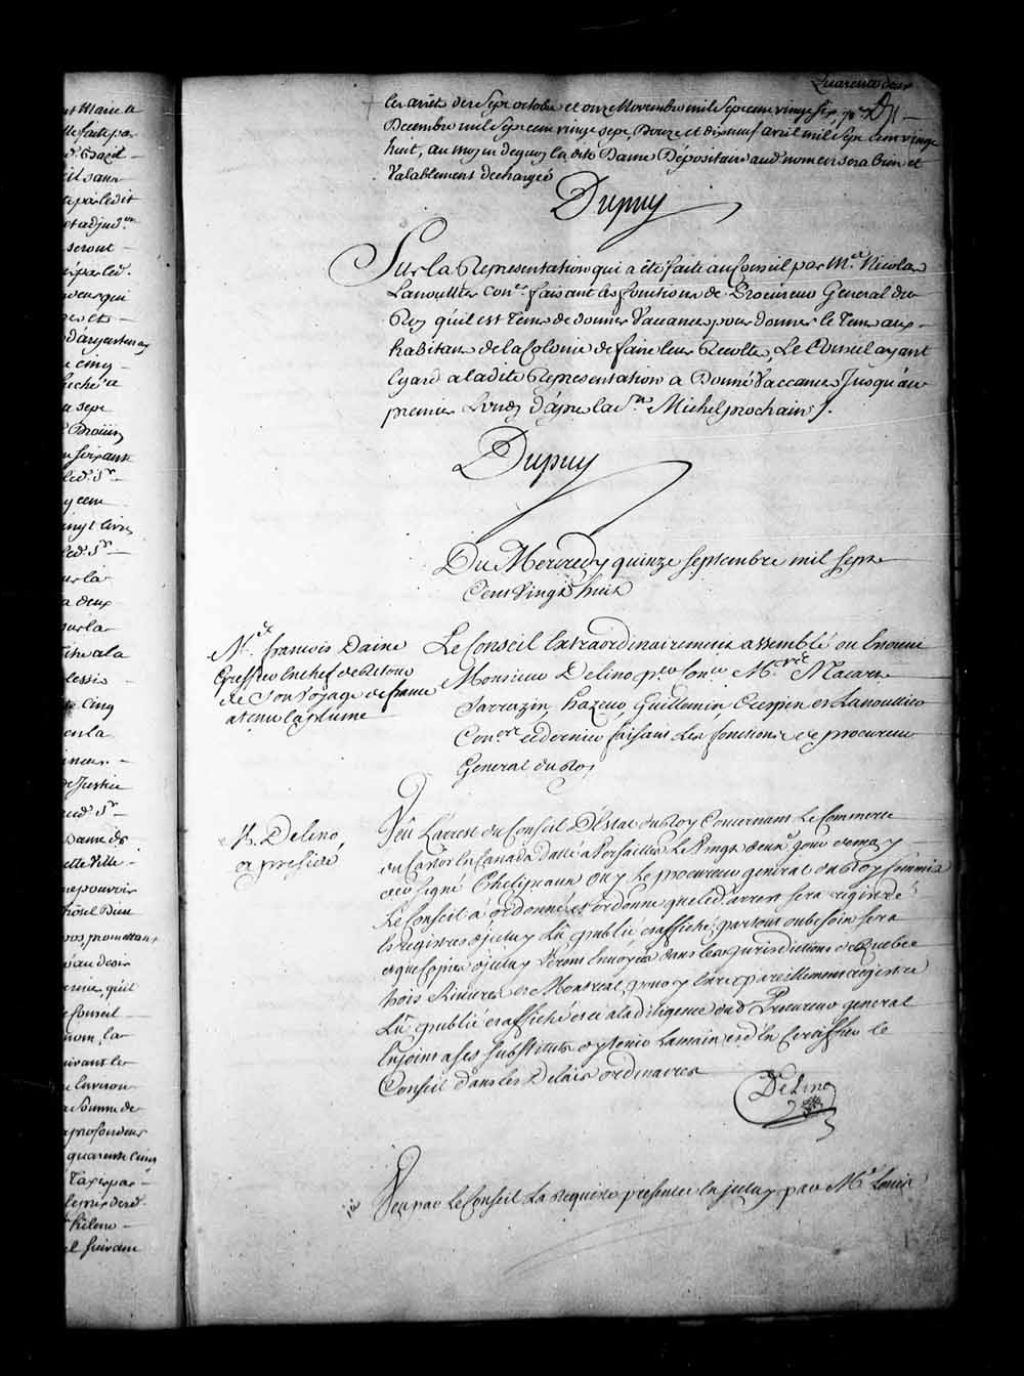 Quarante deux
les arrêts des Sept octobre et onze Novembre mil Sept cent vingt six,
Decembre mil Sept cent vingt sept, Douze et dixneuf avril mil Sept Cent vingt
huit, au moyen dequoy la dite Dame Dépositaire aud. nom en sera bien et
Valablement dechargée
Dupuy
Sur la Representation qui a été faite au Conseil par Me. Nicolas
Lanoullier coner. faisant les fonctions de Procureur General du
Roy qu'il est tems de donner Vaccances pour donner le Tems aux
habitans de la Colonie de faire leur Recolte, Le Conseil ayant
Egard a la dite Representation a Donné Vaccances Jusqu'au
premier Lundy d'après la St. Michel prochain ./.
Dupuy
Du Mercredy quinze Septembre mil Sept
Cent Vingt huit
Me. francois Daine
Greffier en chef de Retour
de Son Voyage de france
a tenu la plume
Le Conseil Extraordinairement assemblé ou Etoient
Monsieur Delino per Coner Mrs. Macart
Sarrazin, hazeur, Guillimin, Crespin et Lanoullier
Coners. ce dernier faisant Les fonctions de procureur
General du Roy
M. Delino,
a preside
Veu L'arrest du Conseil D'Estat du Roy Concernant Le Commerce
du Castor En Canada datté a Versailles Le Vingt deux. jour de may
der Signé Phelypeaux ouy Le procureur general du Roy
Le Conseil a ordonné et ordonne que led. arrest sera registré
Es registres d'iceluy Lû publié et affiché partout ou besoin sera
et que Copies d'iceluy Seront Envoyées dans les jurisdictions de Quebec
trois Rivieres et Montreal pour y Etre pareillement registré
Lû publié et affiché et ce a la diligence dud Procureur general
Enjoint a ses Substituts d'y tenir Lamain et d'En Certiffier le
Conseil dans les Delais ordinaires
DeLino
Veu par Le Conseil La Requeste presentée En iceluy par Mr. Louis
nt Marie a
lle faite par
n Sans
a par ledit
seront
e cinq
fiché a
a sept
n soixante
led. Sr.
y cent
ingt livres
led. Sr.
sur la
a deux
sur la
te Cinq
de Justice
Dame de
ette Ville
pouvoir
hôtel Dieu
vos, promettans
rme, qu'il
Conseil
nom, la
uivant le
u Environ
a Somme de
profondeur
quarante cinq
el suivant